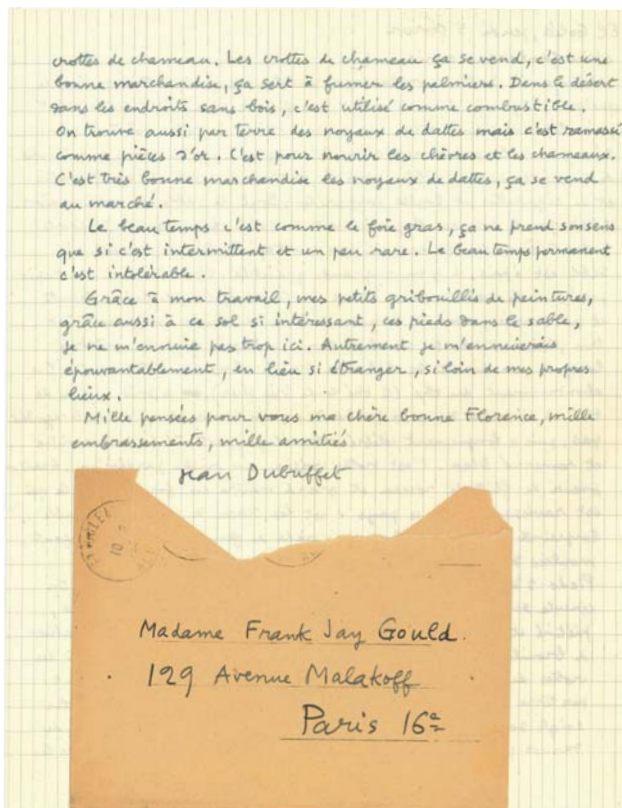 crottes de chameau. Les crottes de chameau ça se vend, c'est une
bonne marchandise, ça sert à fumer les palmiers. Dans le désert
dans les endroits sans bois, c'est utilisé comme combustible.
On trouve aussi par terre des noyaux de dattes mais c'est ramassé
comme pièces d'or. C'est pour nourrir les chèvres et les chameaux.
C'est très bonne marchandise les noyaux de dattes, ça se vend
au marché.
Le beau temps c'est comme le foie gras, ça ne prend son sens
que si c'est intermittent et un peu rare. Le beau temps permanent
c'est intolérable.
Grâce à mon travail, mes petits gribouillis de peintures,
grâce aussi à ce sol si intéressant, ces pieds dans le sable,
je ne m'ennuie pas trop ici. Autrement je m'ennuierais
épouvantablement, en lieu si étranger, si loin de mes propres
lieux.
Mille pensées pour vous ma chère bonne Florence, mille
embrassements, mille amitiés
Jean Dubuffet
10
Madame Frank Jay Gould.
129 Avenue Malakoff
Paris 16e